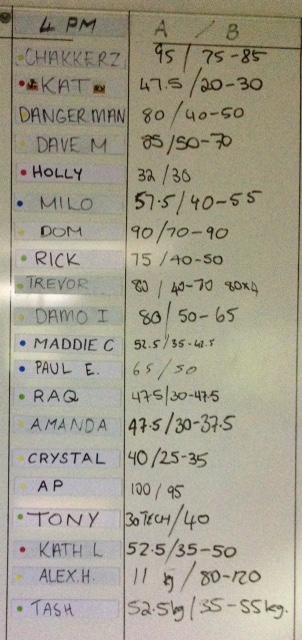 4 PM A / B
CHAKKERZ 95 / 75-85
KAT 47.5/20-30
DANGERMAN 80 / 40-50
DAVE M 85/50-70
HOLLY 32 / 30
MILO 57.5/40-55
DOM 90/70-90
RICK 75 /40-50
TREVOR 80 / 40-70 80x4
DAMO I 80/ 50-65
MADDIE C 52.5 / 35-42.5
PAUL E. 65 / 50
RAQ 47.5/30-47.5
AMANDA 47.5/30-37.5
CRYSTAL 40/25-35
AP 100 / 95
TONY 30 TECH/40
KATH L 52.5/35-50
ALEX.H. 11 kg / 80-120
TASH 52.5kg / 35-55kg.